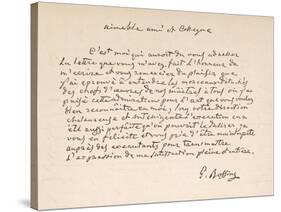 aimable ami et Collègue
C'est moi qui aurois du vous adresser
la lettre que vous m'avez fait l'honneur de
m'ecrire et vous remercier du plaisir que
j'ai éprouvé à entendre les morceaux
des chefs d'œuvres, de nos maîtres à tous où j'ai
puisé cette admiration pour l'art que vous voulez
bien reconnaître en moi; votre direction
chaleureuse et l'exécution en a
été aussi parfaite qu'on pouvoit le désirer j'en
vous en felicite et vous prie d'être mon interprète
auprès des executants pour transmettre
l'expression de ma satisfaction pleine et entière.
G. Rossini